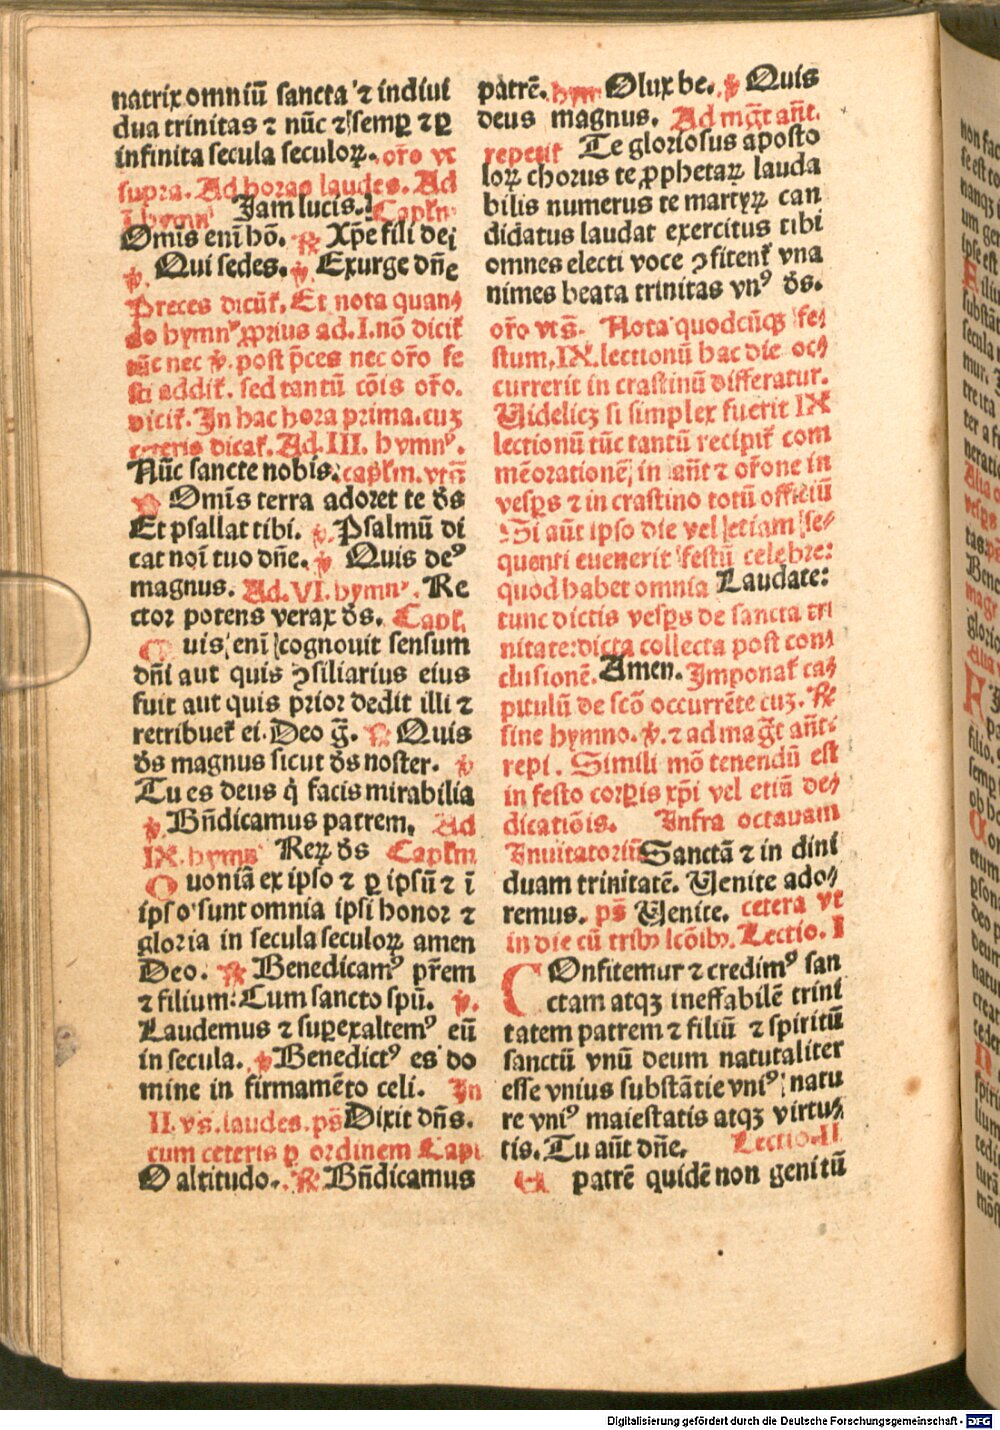 natrix omniū sancta ⁊ indiui
dua trinitas ⁊ nūc ⁊ semꝑ ⁊ ꝑ
infinita secula seculoꝝ. oro vt
supra. Ad horas laudes. Ad
I. hymnꝰ Jam lucis. Caplm
Omīs enī hō. ℟ Xp̄e fili dei
℣. Qui sedes. ℣ Exurge dn̄e
Preces dicūt̄. Et nota quan⸗
do hymnꝰ ꝓprius ad. I. nō dicit̄
tūc nec ℣. post p̄ces nec or̄o fe
sti addit̄. sed tantū cōis or̄o.
dicit̄. In hac hora prima. cuꝫ
ceteris dicat̄. Ad. III. hymnꝰ.
Nūc sancte nobis. caplm. vts̄
℟ Omīs terra adoret te d̄s
Et psallat tibi. ℣. Psalmū di
cat noī tuo dn̄e. ℣ Quis deꝰ
magnus. Ad. VI. hymnꝰ. Re
ctor potens verax d̄s. Capl.
Quis enī cognouit sensum
dn̄i aut quis ꝯsiliarius eius
fuit aut quis prior dedit illi ⁊
retribuet̄ ei. Deo ḡ. ℟ Quis
d̄s magnus sicut d̄s noster. ℣
Tu es deus q̇ facis mirabilia
℣. Bn̄dicamus patrem. Ad
IX. hymnꝰ Reꝝ d̄s Caplm
Quoniā ex ipso ⁊ ꝑ ipsū ⁊ ī
ipso sunt omnia ipsi honor ⁊
gloria in secula seculoꝝ amen
Deo. ℟ Benedicamꝰ pr̄em
⁊ filium: Cum sancto spū. ℣.
Laudemus ⁊ suꝑexaltemꝰ eū
in secula. ℣ Benedictꝰ es do
mine in firmamēto celi. In
II. vs. laudes. ps̄ Dixit dn̄s.
cum ceteris ꝑ ordinem Capi
O altitudo. ℟ Bn̄dicamus
patrē. hym O lux be. ℣ Quis
deus magnus. Ad mḡt an̄t.
repetit̄ Te gloriosus aposto
loꝝ chorus te ꝓphetaꝝ lauda
bilis numerus te martyꝝ can
didatus laudat exercitus tibi
omnes electi voce ꝯfitent̄ vna
nimes beata trinitas vnꝰ d̄s.
or̄o vts̄. Nota quodcūqꝫ fe⸗
stum. IX. lectionū hac die oc⸗
currerit in crastinū differatur.
Videlicꝫ si simplex fuerit IX
lectionū tūc tantū recipit̄ com
mēorationē, in an̄t ⁊ or̄one in
vesꝑs ⁊ in crastino totū officiū
Si aūt ipso die vel etiam se⸗
quenti euenerit festū celebre:
quod habet omnia Laudate:
tunc dictis vesꝑs de sancta tri
nitate: dicta collecta post con⸗
clusionē. Amen. Imponat̄ ca⸗
pitulū de scō occurrēte cuꝫ. ℟
sine hymno. ℣. ⁊ ad mag̅t an̄ti
repi. Simili mō tenendū est
in festo corꝑis xp̄i vel etiā de⸗
dicatiōis. Infra octauam
Inuitatoriū Sanctā ⁊ in diui
duam trinitatē. Venite ado⸗
remus. ps̄ Venite. cetera vt
in die cū tribꝰ lcōibꝰ. Lectio. I
COnfitemur ⁊ credimꝰ san
ctam atqꝫ ineffabilē trini
tatem patrem ⁊ filiū ⁊ spiritū
sanctū vnū deum natutaliter
esse vnius substātie vniꝰ natu
re vniꝰ maiestatis atqꝫ virtu⸗
tis. Tu aūt dn̄e. Lectio. II
Et patrē quidē non genitū
Digitalisierung gefördert durch die Deutsche Forschungsgemeinschaft - DFG